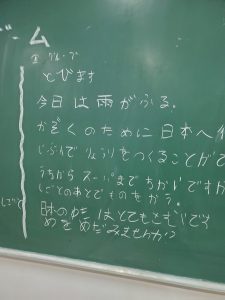 ム
① グループ
とびます
今日は雨がふる。
かぞくのために日本へ
じぶんでりょうりをつくることが
うちからスーパーまでちかいですか
しごとのあとでものをかう。
日本のゆきはとてもさむいです
しごと